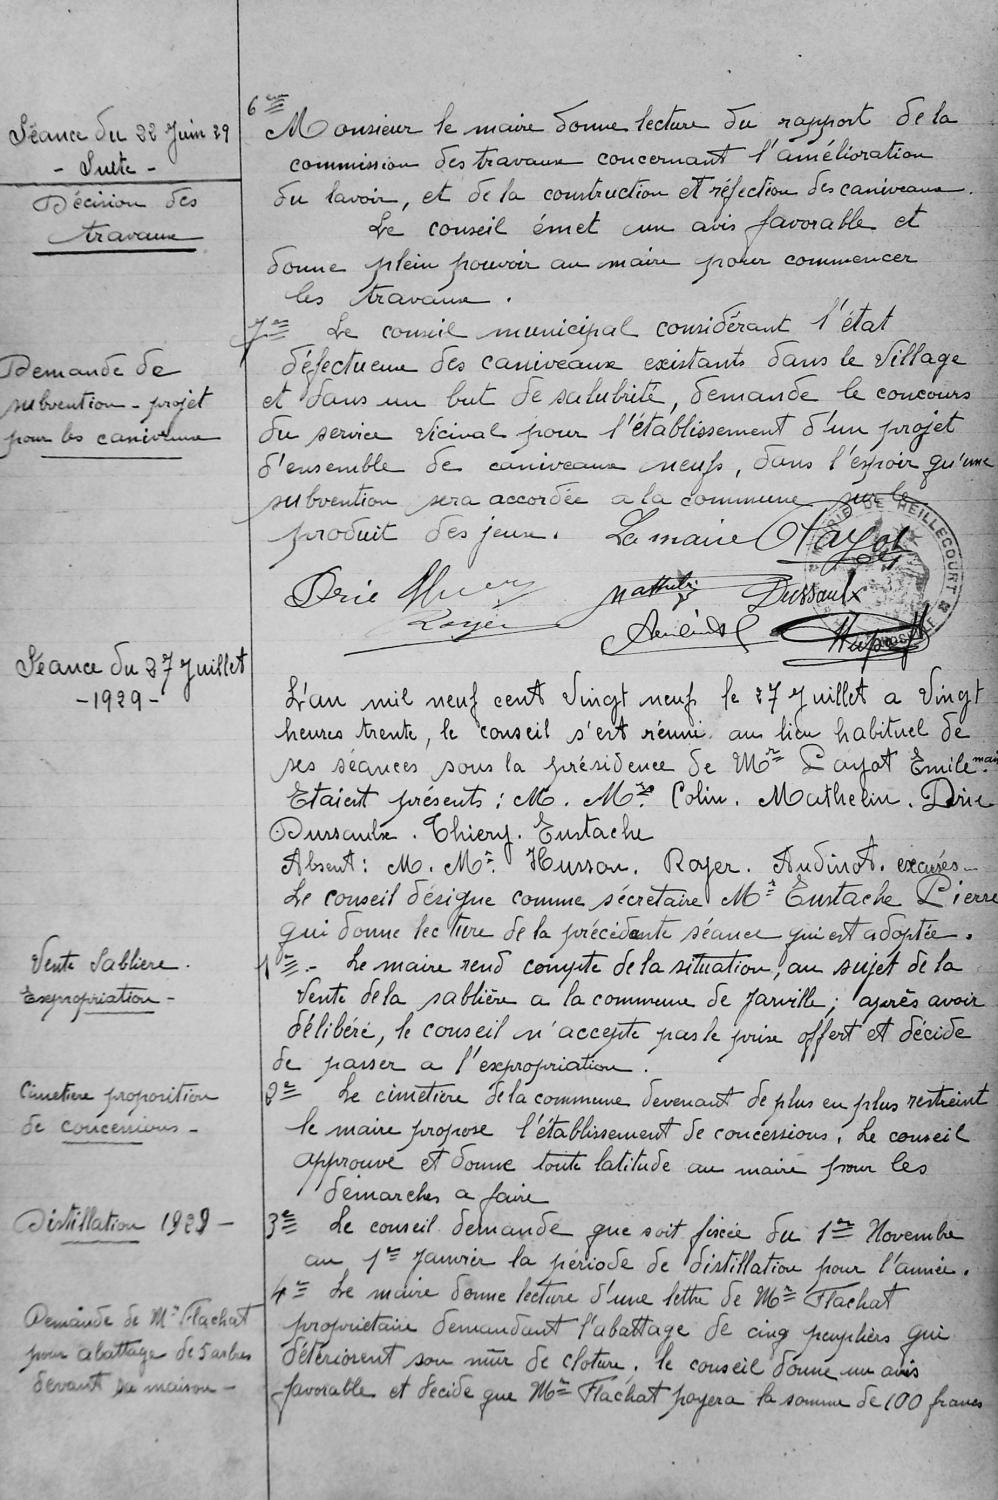 Séance du 22 Juin 29
- Suite -
Décision des
travaux
6em
Monsieur le maire donne lecture du rapport de la
commission des travaux concernant l'amélioration
du lavoir, et de la construction et réfection des caniveaux.
Le conseil émet un avis favorable et
donne plein pouvoir au maire pour commencer
les travaux.
Demande de
subvention - projet
pour les caniveaux
7em Le conseil municipal considérant l'état
défectueux des caniveaux existants dans le village
et dans un but de salubrité, demande le concours
du service vicinal pour l'établissement d'un projet
d'ensemble de caniveaux neufs, dans l'espoir qu'une
subvention sera accordée a la commune sur le
produit des jeux. Le maire Payot
MAIRIE DE REILLECOURT
Drie Royer Mathelin Dussaulx
Séance du 27 Juillet
- 1929 -
L'an mil neuf cent vingt neuf le 27 Juillet a vingt
heures trente, le conseil s'est réuni au lieu habituel de
ses séances sous la présidence de Mr Payot Emile maire
Etaient présents : M. Mrs Colin. Mathelin. Drie
Dussaulx. Thiery. Eustache
Absent : M. Mr. Husson. Royer. Audinot. excusés -
Le conseil désigne comme sécrétaire Mr Eustache Pierre
qui donne lecture de la précédente séance qui est adoptée.
Vente Sablière.
Expropriation -
1em. - Le maire rend compte de la situation, au sujet de la
vente de la sablière a la commune de Jarville ; après avoir
délibéré, le conseil n'accepte pas le prix offert et décide
de passer a l'expropriation.
Cimetiere proposition
de concessions -
2em Le cimetiere de la commune devenant de plus en plus restreint
le maire propose l'établissement de concessions. Le conseil
approuve et donne toute latitude au maire pour les
démarches a faire
Distillation 1929 -
3em Le conseil demande que soit fixée du 1er Novembre
au 1er Janvier la période de distillation pour l'année.
Demande de Mr Flachat
pour abattage de 5 arbres
devant sa maison -
4em Le maire donne lecture d'une lettre de Mr Flachat
propriétaire demandant l'abattage de cinq peupliers qui
détériorent son mur de cloture. le conseil donne un avis
favorable et décide que Mr Flachat payera la somme de 100 francs